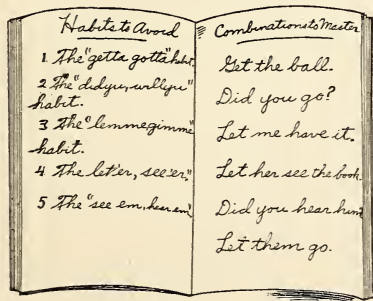 Habits to Avoid
1. The "getta gotta" habit.
2 The "didyu, willyu"
habit.
3 The "lemme gimme"
habit.
4 The let'er, see'er."
5 The "see em, hear em"
Combinations to Master
Get the ball.
Did you go?
Let me have it.
Let her see the book.
Did you hear him?
Let them go.